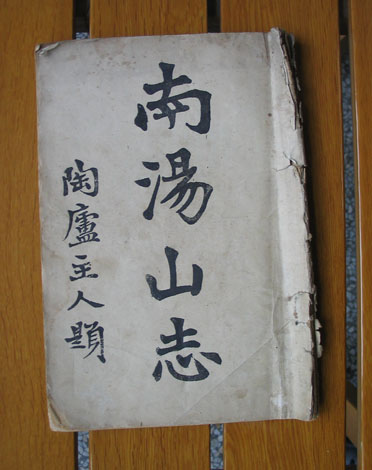 南湯山志
陶廬主人題